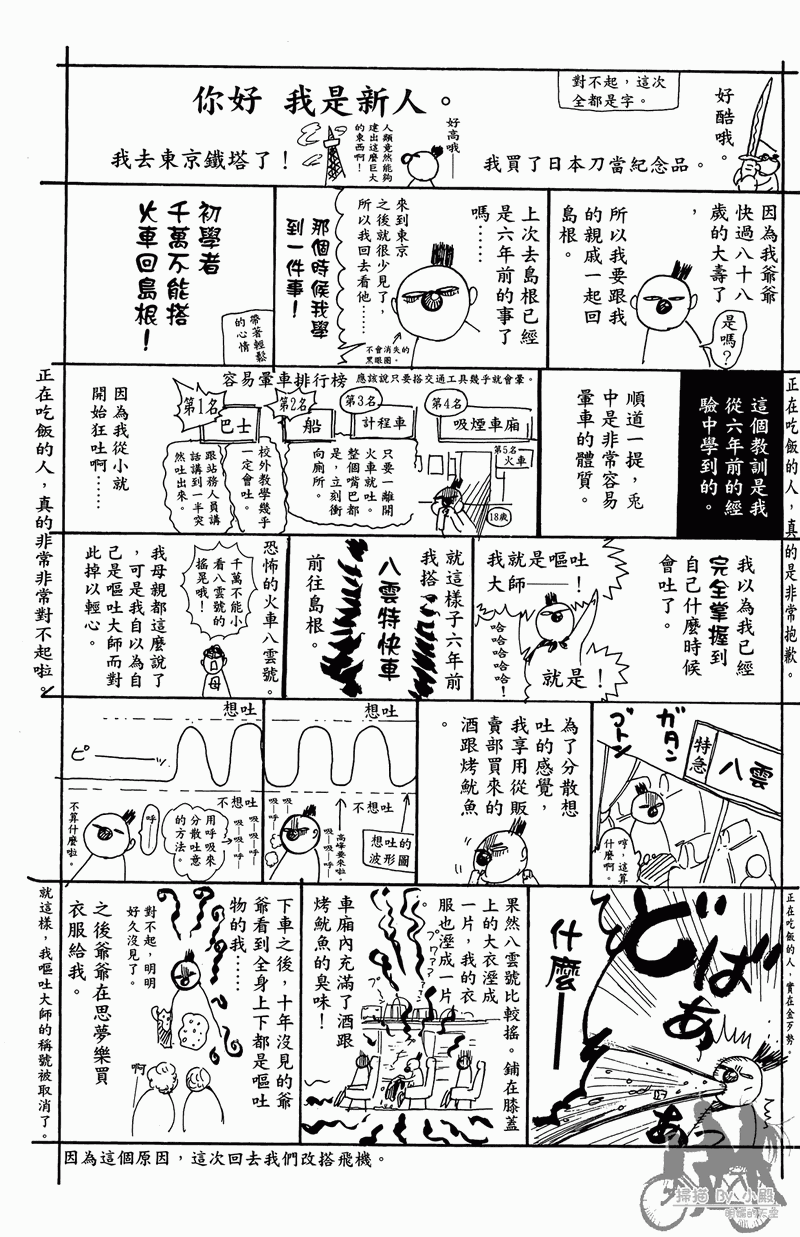 對不起，這次
全都是字。
你好 我是新人。
好酷哦。
我買了日本刀當紀念品。
好高哦——
人類竟然能夠
建出這麼巨大
的東西啊！
我去東京鐵塔了！
因為我爺爺
快過八十八
歲的大壽了
，
是嗎？
所以我要跟我
的親戚一起回
島根。
上次去島根已經
是六年前的事了
嗎……
來到東京
之後就很少見了，
所以我回去看他……
不會消失的
黑眼圈。
那個時候我學
到一件事！
初學者
千萬不能搭
火車回島根！
帶著輕鬆
的心情
正在吃飯的人，真的是非常抱歉。
這個教訓是我
從六年前的經
驗中學到的。
順道一提，兎
中是非常容易
暈車的體質。
容易暈車排行榜
應該說只要搭交通工具幾乎就會暈。
第4名
吸煙車廂
第5名
火車
18歲
第3名
計程車
只要一離開
火車就吐。
整個嘴巴都
是，立刻衝
向廁所。
第2名
船
校外教學幾乎
一定會吐。
第1名
巴士
跟站務人員講
話講到一半突
然吐出來。
因為我從小就
開始狂吐啊……
正在吃飯的人，真的非常非常對不起啦。
我以為我已經
完全掌握到
自己什麼時候
會吐了。
我就是嘔吐
大師——！
哈哈哈哈哈！
就是！
就這樣子六年前
我搭
八雲特快車
前往島根。
恐怖的火車八雲號。
千萬不能小
看八雲號的
搖晃哦！
母
我母親都這麼說了
，可是我自以為自
己是嘔吐大師而對
此掉以輕心。
ガタン
ゴトン
特急
八雲
哼，這算
什麼啊。
為了分散想
吐的感覺，
我享用從販
賣部買來的
酒跟烤魷魚
想吐
不想吐
高峰要來啦！
吸—吸—呼—
想吐的
波形圖
想吐
ピ——
不想吐
吸—吸—呼—
用呼吸來
分散吐意
的方法。
呼—
不算什麼啦。
正在吃飯的人、實在金歹勢。
どばぁぁっ
什麼——
果然八雲號比較搖。鋪在膝蓋
上的大衣溼成
一片，我的衣
服也溼成一片
車廂內充滿了酒跟
烤魷魚的臭味！
下車之後，十年沒見的爺
爺看到全身上下都是嘔吐
物的我……
對不起，明明
好久沒見了。
啊
之後爺爺在思夢樂買
衣服給我。
就這樣，我嘔吐大師的稱號被取消了。
因為這個原因，這次回去我們改搭飛機。
掃描 BY 小殿